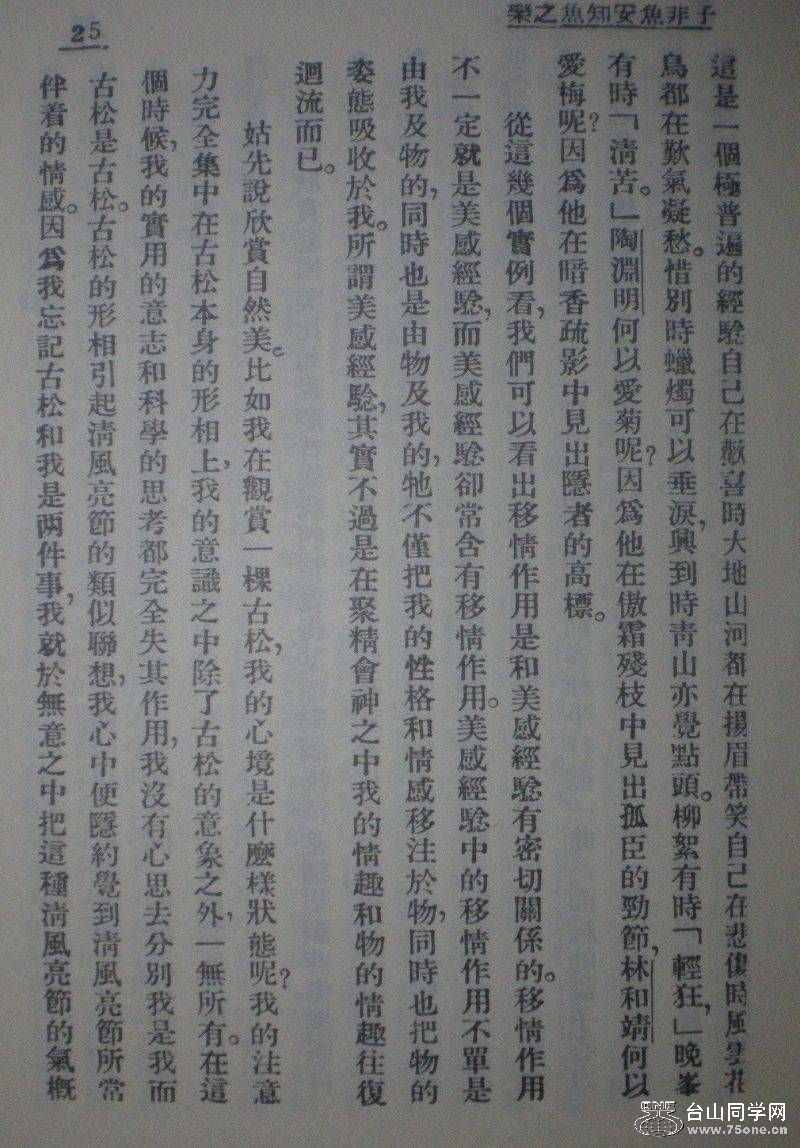 樂之魚知安魚非子
25
這是一個極普遍的經驗自己在歡喜時大地山河都在揚眉帶笑自己在悲傷時風雲花
鳥都在歎氣凝愁。惜別時蠟燭可以垂淚，興到時靑山亦覺點頭。柳絮有時「輕狂，」晚峯
有時「淸苦。」陶淵明何以愛菊呢？因爲他在傲霜殘枝中見出孤臣的勁節，林和靖何以
愛梅呢？因爲他在暗香疏影中見出隱者的高標。
從這幾個實例看，我們可以看出移情作用是和美感經驗有密切關係的。移情作用
不一定就是美感經驗，而美感經驗卻常含有移情作用。美感經驗中的移情作用不單是
由我及物的，同時也是由物及我的，牠不僅把我的性格和情感移注於物，同時也把物的
姿態吸收於我。所謂美感經驗，其實不過是在聚精會神之中我的情趣和物的情趣往復
迴流而已。
姑先說欣賞自然美。比如我在觀賞一棵古松，我的心境是什麼樣狀態呢？我的注意
力完全集中在古松本身的形相上，我的意識之中除了古松的意象之外，一無所有。在這
個時候，我的實用的意志和科學的思考都完全失其作用，我沒有心思去分別我是我而
古松是古松。古松的形相引起淸風亮節的類似聯想，我心中便隱約覺到淸風亮節所常
伴着的情感。因爲我忘記古松和我是两件事，我就於無意之中把這種淸風亮節的氣概
台山同学网
www.75one.cn